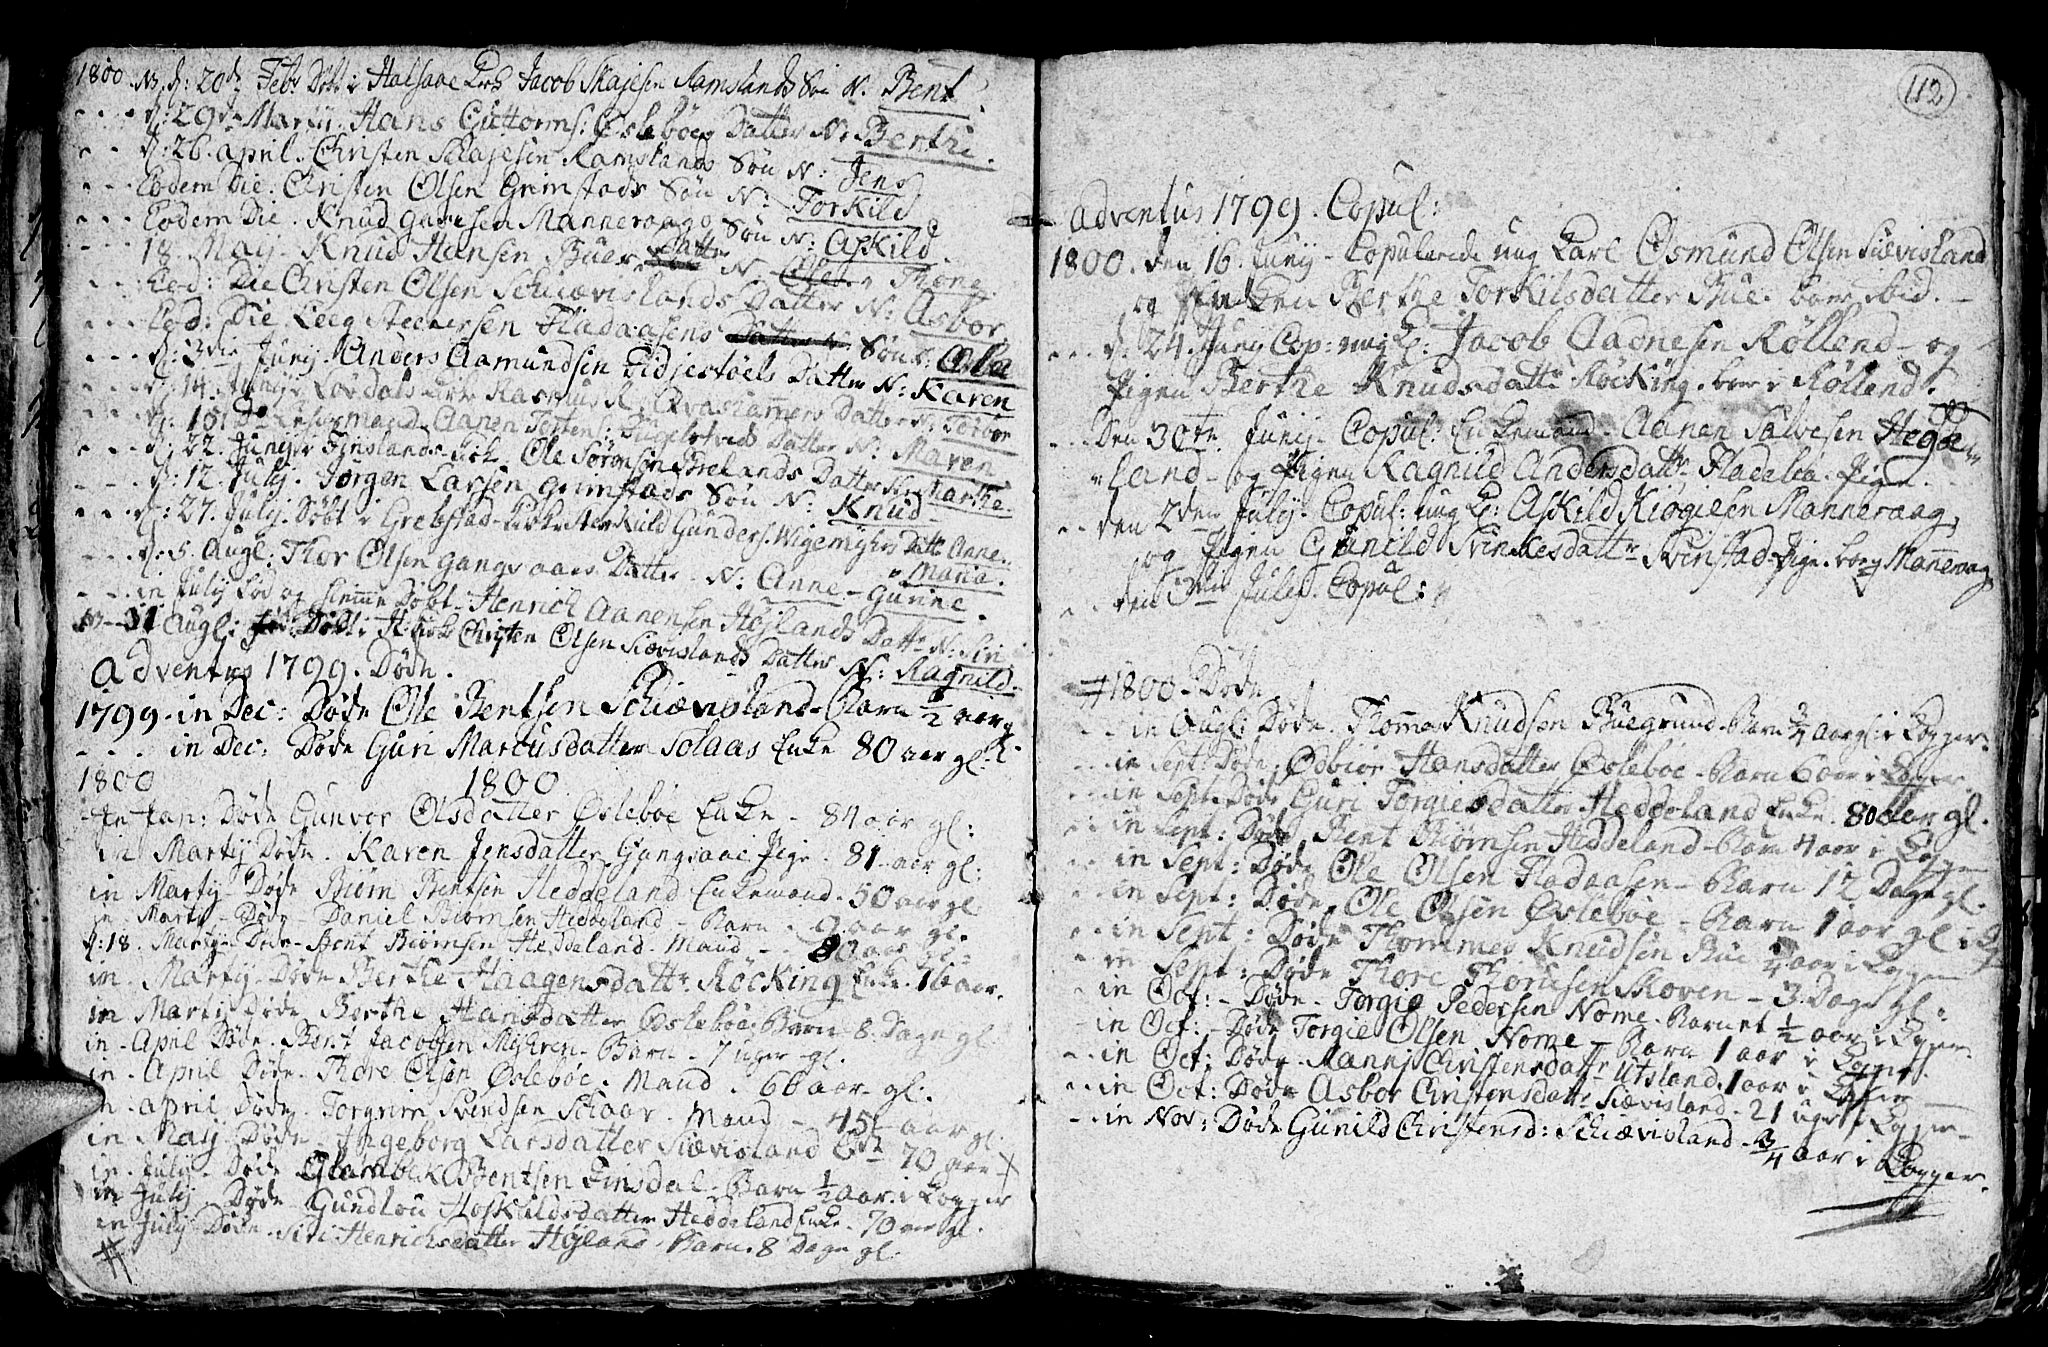 1800. NB. d: 20de Febr Døbt i Halsaae Kirk Jacob Skajesen Ramslands Søn N. Bent.
- - - d: 29de Martij. Hans Guttorms: Øslebøes Datter N: Berthe.
- - - d: 26. april. Christen Skajesen Ramslands Søn N: Jens
- - - Eodem Die: Christen Olsen Grimstads Søn N: Torkild
- - - Eodem Die. Knud Mannevaags Søn N: Askild.
- - - 18. Maij. Knud Hansen Bues Datter N. Thone.
- - - Eod: Die Christen Olsen Schiævislands Datter N: Asbor
- - - Eod: Die. Steenersen Fladaasens Søn N:
- - - d: 3die Junij Anders Aamundsen Datter N: Karen
- - - d: 14. Junij Datter N: Torbor
- - - d: 15. Aanen Datter N: Maren
- - - d: 22. Junij i Finslands Kirk. Ole Sørensen Brelands Datter N: Marthe.
- - - d: 12. Julij. Jørgen Larsen Grimstads Søn N: Knud
- - - d: 27. Julij. Døbt i Grebstad Kirke Gunders. Wigemyhrs Datt. Anne Maria.
- - - d: 5. Augl: Thor Olsen Gangsaaes Datter N: Anne Gurine.
- - - in Julij fød og hiemme Døbt. Henrich Aanensen Højlands Datt. N: Siri.
NB - 31 Augl: Døbt i H: Kirke Christen Olsen Siævislands Datter N: Ragnild.
Adventus 1799. Døde.
1799. in Dec: Døde Ole Bentsen Schiævisland. Barn ½ aar g
- - - in Dec: Døde Guri Marcusdatter Solaas Enke 80 aar gl:
1800 1800
In Jan: Døde Gunvor Olsdatter Øslebøe Enke - 84 aar gl:
in Martij Døde. Karen Jensdatter Gangsaae Pige. 81. aar gl:
in Martij. Døde Biørn Bentsen Heddeland Enkemand. 50 aar gl.
in Martij. Døde. Daniel Biørnsen Heddeland - Barn. 9 aar gl.
d: 18. Martij. Døde. Bent Biørnsen Heddeland. Mand - 80 aar gl:
in Martij. Døde Berthe Haagensdattr. Røcking Enke. 16 aar.
in Martij Døde. Berthe Hansdatter Øslebøe. Barn. 8. Dage gl.
in. April Døde. Bent Jacobsen Mehren. Barn. 7 uger gl.
in. April Døde. Thore Olsen Øslebøe. Mand. 66 aar. gl.
in april Døde. Torgrim Svendsen Schaar. Mand - 45 aar gl.
in Maij. Døde Ingeborg Larsdatter Siævisland 70 aar
in. Julij. Døde Glambek Bentsen Finsdal. Barn ½ aar. i Kopper
in Julij. Døde Gundlou Hoskildsdatter Heddeland Enke. 70 aar gl.
in Julij. Døde. Siri Henrichsdatter Højland. Barn. 8 Dage gl.
#
112
Adventus 1799. Copul:
1800. Den 16. Junij. Copulerede ung Karl Osmund Olsen Siævisland
og Enken Berthe Torkilsdatter Bue. boer ibid.
- - - d: 24. Junij Cop: ung K: Jacob Aadnesen Røllend. og
Pigen Berthe Knudsdattr. Røcking. boer i Røllend.
- - - Den 30te. Junij. Copul: Enkemand. Aanen Salvesen Hegge=
=land. og Pigen Ragnild Andersdattr. Fladebøe. Pige.
- - - den 2den Julij. Copul: ung K: Askild Kiøgelsen Mannevaag,
og Pigen Gunild Svinkesdattr Svinstad. Pige. boer Mannevaag
- - - den 3die Julij. Copul:
# 1800. Døde.
- - in Augl: Døde. Thoma Knudsen Buegrund. Barn ¾ aar gl. i Kopper.
- - in Sept: Døde. Odbiør Hansdatter Øslebøe. Barn 6 aar i Kopper
- - in Sept. Døde Guri Torgiesdatter Heddeland Enke. 80 aar gl.
- - in Sept: Døde Bent Biørnsen Heddeland. Barn 4 aar i Kopper
- - in Sept: Døde Ole Olsen Fladaasen. Barn 12 Dage gl.
- - in Sept: Døde. Ole Olsen Øslebøe. Barn 1 aar gl i
- - in Sept: Døde Thommes Knudsen Bue ¼ aar i Kopper
- in Sept: Døde Thore Thorusen Skoven. 3 Dage gl.
- in Oct: - Døde. Torgie Pedersen Nome. Barnet ½ aar i Kopper
- in Oct: - Døde Torgie Olsen Nome. Barn 1 aar i Kopper.
- - in Oct: Døde. Christensdattr. Utsland. 1 aar i Kopper
- - in Oct: Døde Asbor Christensdattr. Siævisland. 21 uger i Kopper
- - in Nov: Døde Gunild Christensd: Schiævisland. ¾ aar i Kopper.